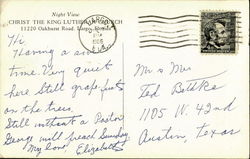 Night View
CHRIST THE KING LUTHERAN CHURCH
11220 Oakhurst Road, Largo, Florida
Hi
Having a nice
time. Very quiet
here. Still grapefruits
on the trees.
Still without a Pastor
George will preach Sunday.
My love, Elizabeth
Mr & Mrs
Ted Bathke
1105 W. 42nd
Austin, Texas